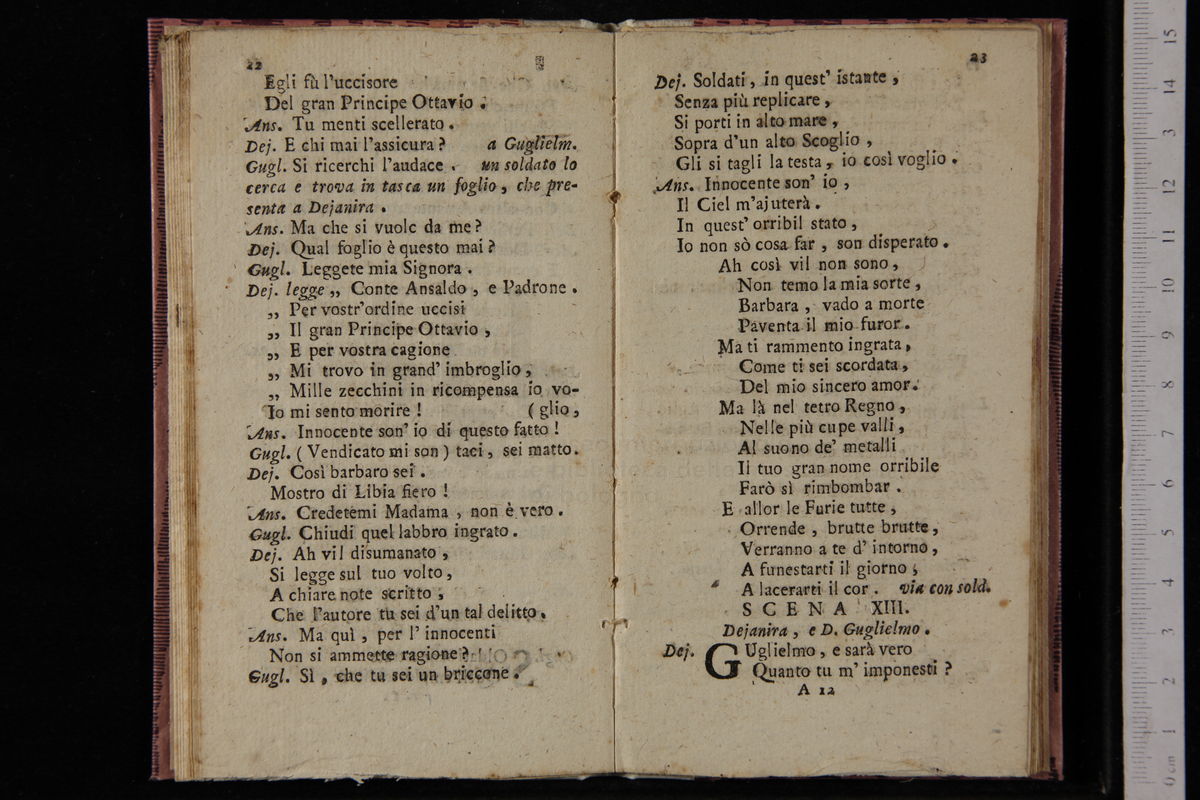 22
Egli fù l'uccisore
Del gran Principe Ottavio .
Ans. Tu menti scellerato .
Dej. E chi mai l'assicura ? a Guglielm.
Gugl. Si ricerchi l'audace . un soldato lo
cerca e trova in tasca un foglio , che pre-
senta a Dejanira .
Ans. Ma che si vuole da me ?
Dej. Qual foglio è questo mai ?
Gugl. Leggete mia Signora .
Dej. legge ,, Conte Ansaldo , e Padrone .
,, Per vostr'ordine uccisi
,, Il gran Principe Ottavio ,
,, E per vostra cagione
,, Mi trovo in grand' imbroglio ,
,, Mille zecchini in ricompensa io vo-
Io mi sento morire ! ( glio ,
Ans. Innocente son' io di questo fatto !
Gugl. ( Vendicato mi son ) taci , sei matto .
Dej. Così barbaro sei .
Mostro di Libia fiero !
Ans. Credetemi Madama , non è vero .
Gugl. Chiudi quel labbro ingrato .
Dej. Ah vil disumanato ,
Si legge sul tuo volto ,
A chiare note scritto ,
Che l'autore tu sei d'un tal delitto .
Ans. Ma quì , per l' innocenti
Non si ammette ragione ?
Gugl. Sì , che tu sei un briccone .
23
Dej. Soldati , in quest' istante ,
Senza più replicare ,
Si porti in alto mare ,
Sopra d'un alto Scoglio ,
Gli si tagli la testa , io così voglio .
Ans. Innocente son' io ,
Il Ciel m'ajuterà .
In quest' orribil stato ,
Io non sò cosa far , son disperato .
Ah così vil non sono ,
Non temo la mia sorte ,
Barbara , vado a morte
Paventa il mio furor .
Ma ti rammento ingrata ,
Come ti sei scordata ,
Del mio sincero amor .
Ma là nel tetro Regno ,
Nelle più cupe valli ,
Al suono de' metalli
Il tuo gran nome orribile
Farò sì rimbombar .
E allor le Furie tutte ,
Orrende , brutte brutte ,
Verranno a te d' intorno ,
A funestarti il giorno ,
A lacerarti il cor . via con sold.
SCENA XIII.
Dejanira , e D. Guglielmo .
Dej. GUglielmo , e sarà vero
Quanto tu m' imponesti ?
A 12